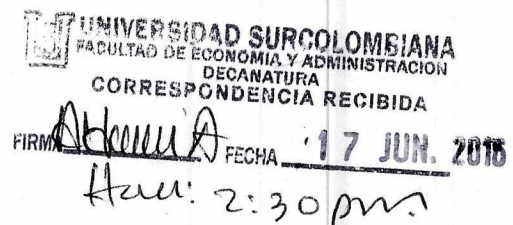 UNIVERSIDAD SURCOLOMBIANA
FACULTAD DE ECONOMIA Y ADMINISTRACION
DECANATURA
CORRESPONDENCIA RECIBIDA
FIRMA FECHA 17 JUN. 2016
2:30 pm.